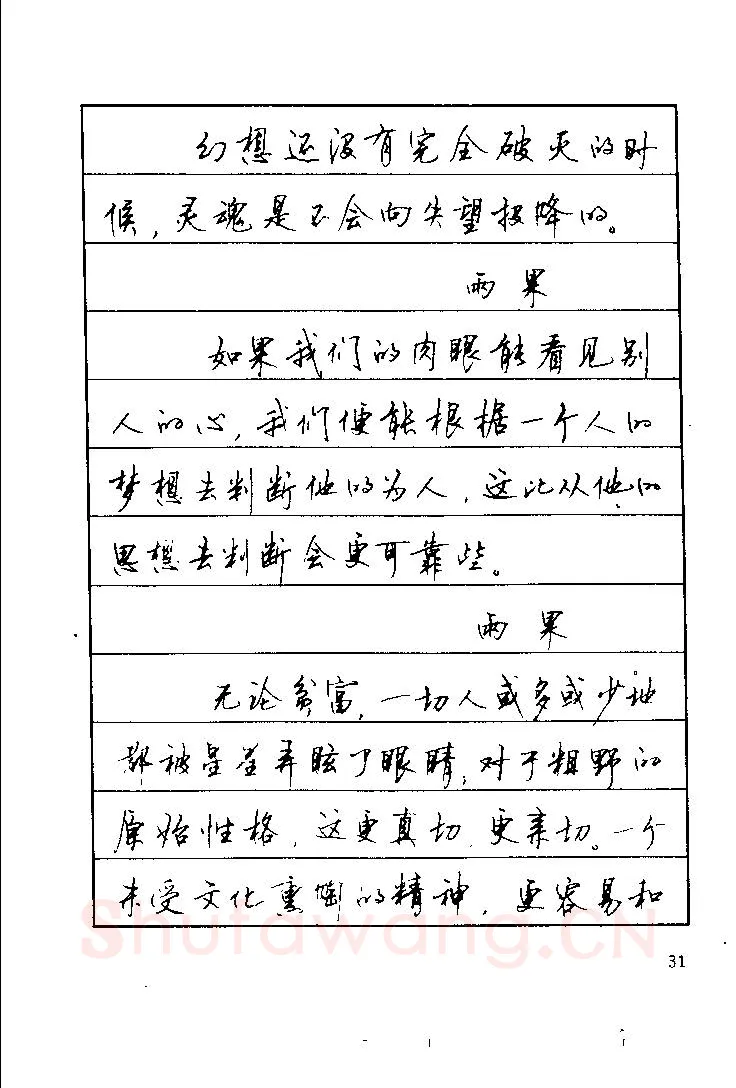 幻想还没有完全破灭的时
候，灵魂是不会向失望投降的。
雨果
如果我们的肉眼能看见别
人的心，我们便能根据一个人的
梦想去判断他的为人，这比从他的
思想去判断会更可靠些。
雨果
无论贫富，一切人或多或少地
都被星星弄眩了眼睛，对于粗野的
原始性格，这更真切，更亲切。一个
未受文化熏陶的精神，更容易和
Shufawang.CN
31